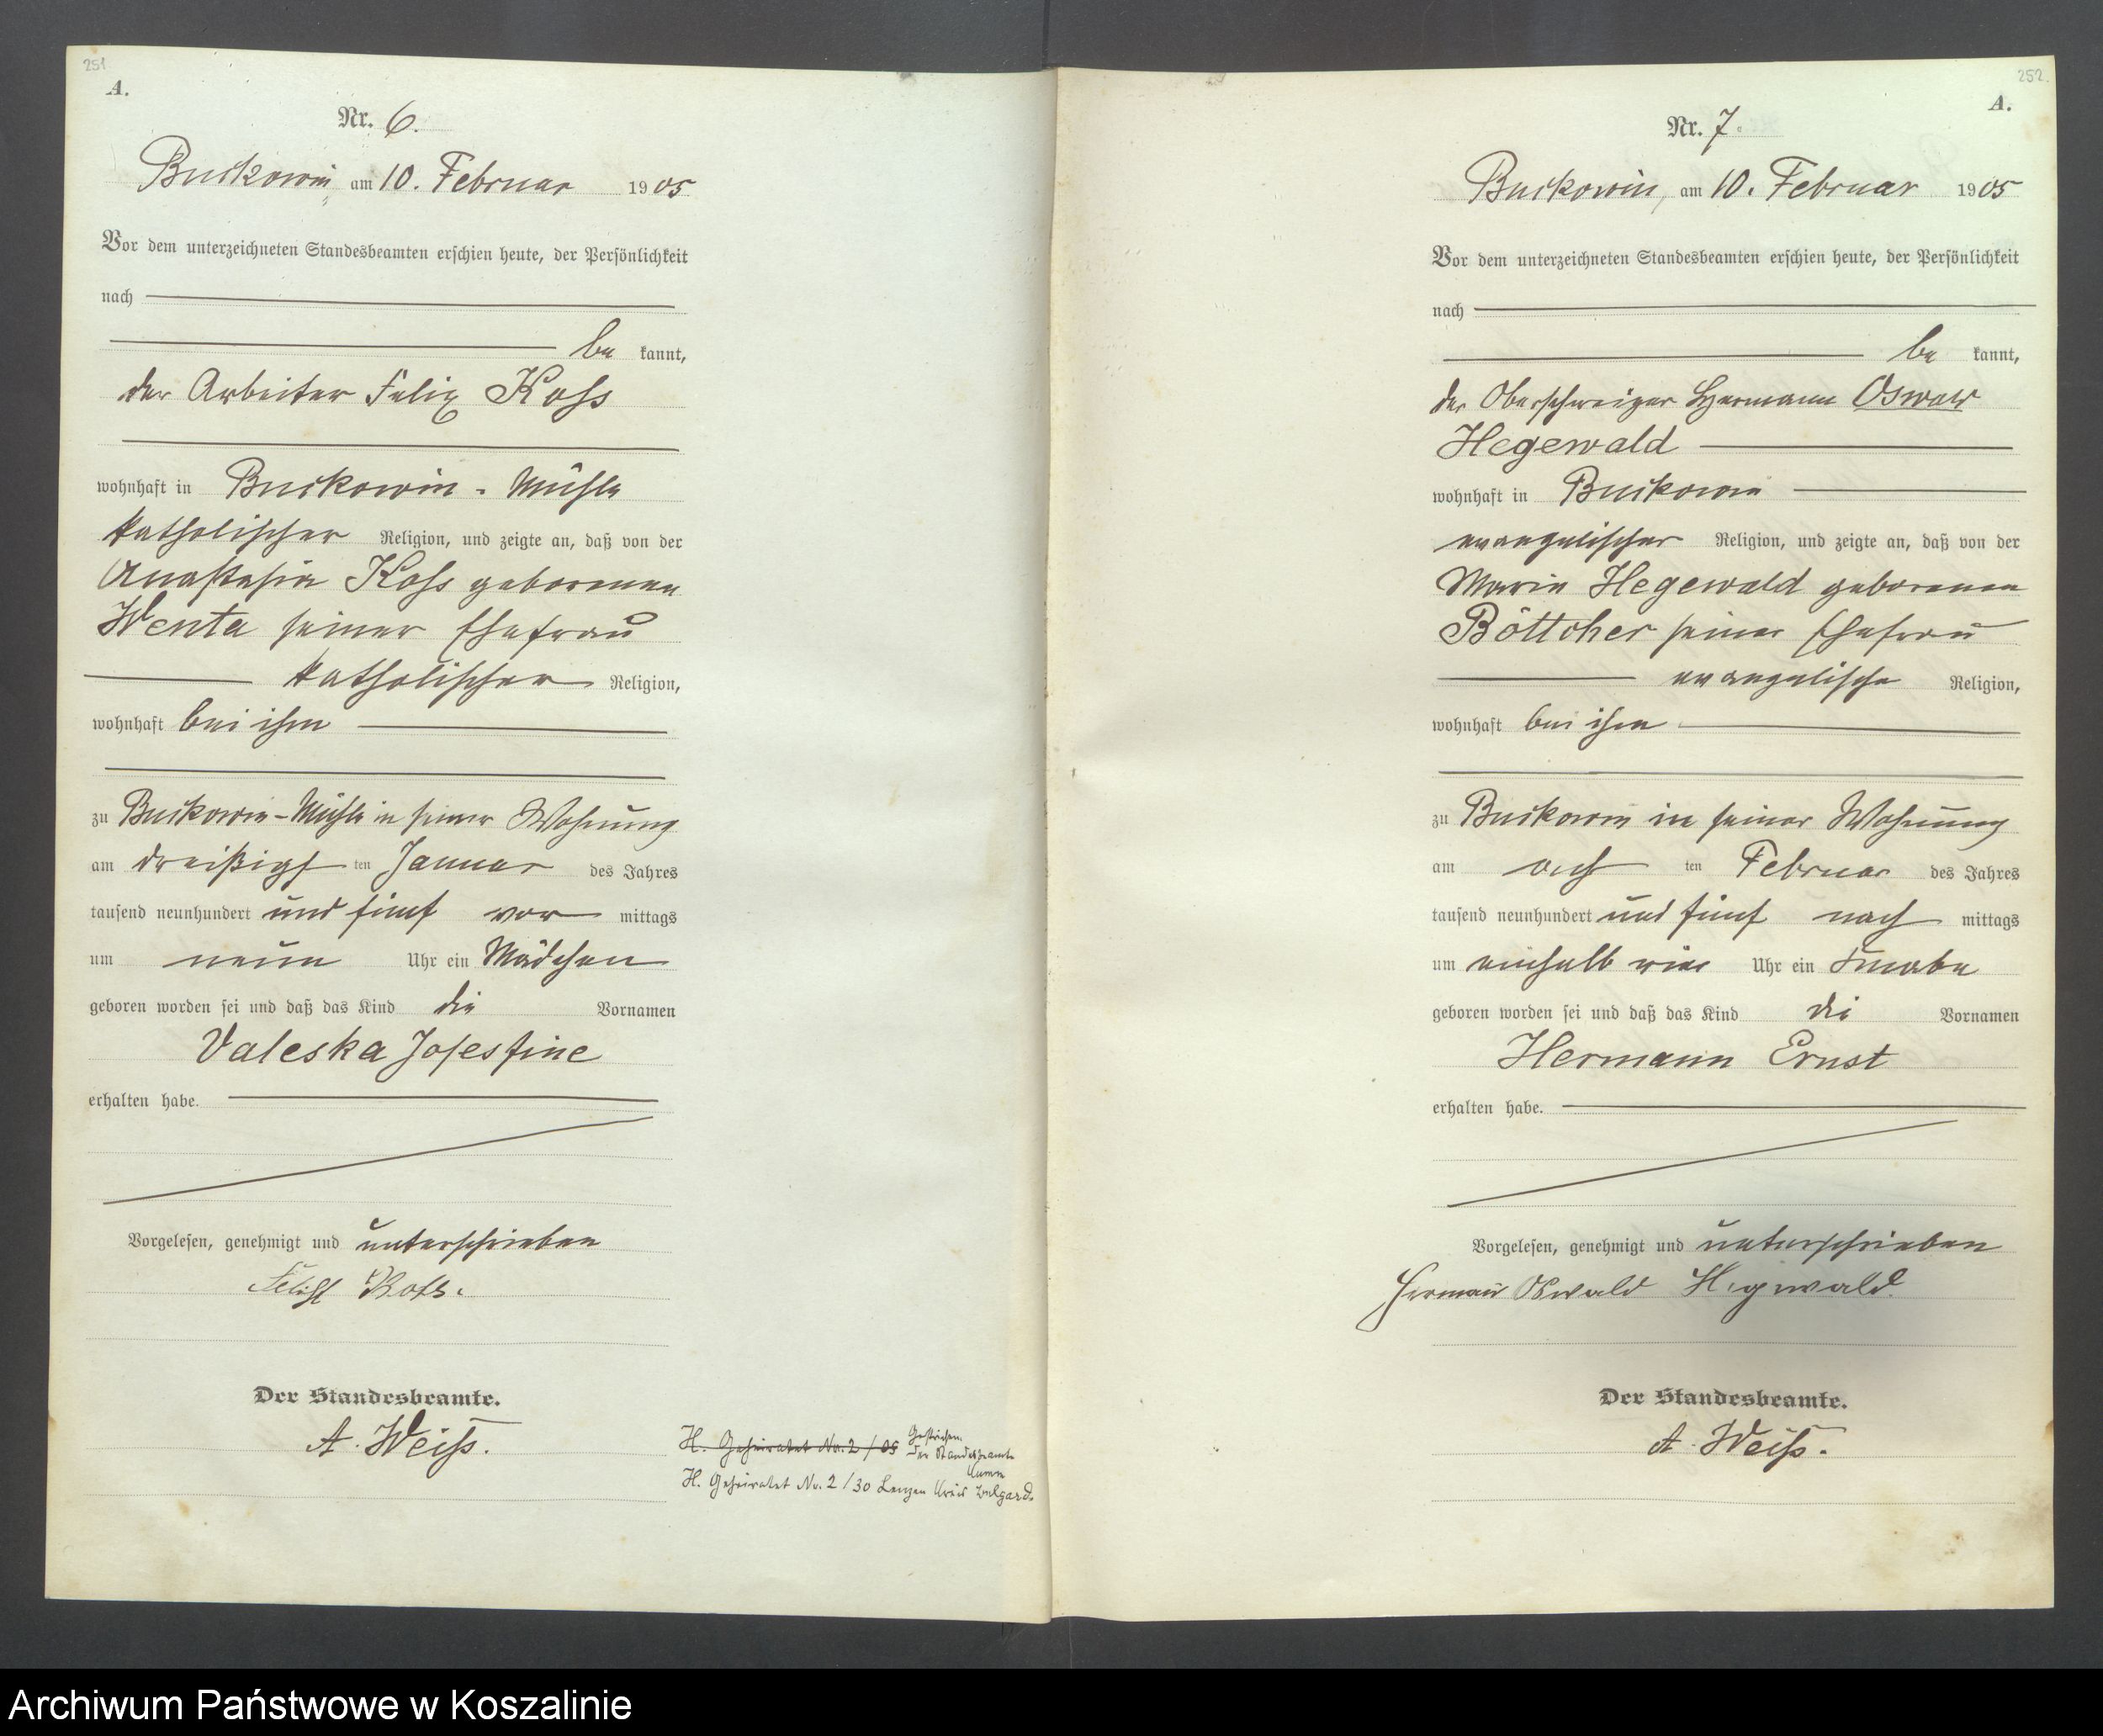 251
A.
Nr. 6.
Buckowin, am 10. Februar 1905
Vor dem unterzeichneten Standesbeamten erschien heute, der Persönlichkeit
nach
be kannt,
der Arbeiter Felix Koss
wohnhaft in Buckowin - Mühle
katholischer Religion, und zeigte an, daß von der
Anastasia Koss geborenen
Wenta seiner Ehefrau
katholischer Religion,
wohnhaft bei ihm
zu Buckowin-Mühle in seiner Wohnung
am dreißigs ten Januar des Jahres
tausend neunhundert und fünf vor mittags
um neun Uhr ein Mädchen
geboren worden sei und daß das Kind die Vornamen
Valeska Josefine
erhalten habe.
Vorgelesen, genehmigt und unterschrieben
Koss.
Der Standesbeamte.
A. Weiss.
H. Geheiratet No. 2 / 05 Gestrichen.
Der Standesbeamte
H. Geheiratet No. 2 / 30 Lenzen Kreis Belgard.
252.
A.
Nr. 7.
Buckowin, am 10. Februar 1905
Vor dem unterzeichneten Standesbeamten erschien heute, der Persönlichkeit
nach
be kannt,
der Oberschweizer Hermann Oswald
Hegewald
wohnhaft in Buckowin
evangelischer Religion, und zeigte an, daß von der
Marie Hegewald geborenen
Böttcher seiner Ehefrau
evangelische Religion,
wohnhaft bei ihm
zu Buckowin in seiner Wohnung
am ach ten Februar des Jahres
tausend neunhundert und fünf nach mittags
um einhalb vier Uhr ein Knabe
geboren worden sei und daß das Kind die Vornamen
Hermann Ernst
erhalten habe.
Vorgelesen, genehmigt und unterschrieben
Herman Oswald Hegewald.
Der Standesbeamte.
A. Weiss.
Archiwum Państwowe w Koszalinie